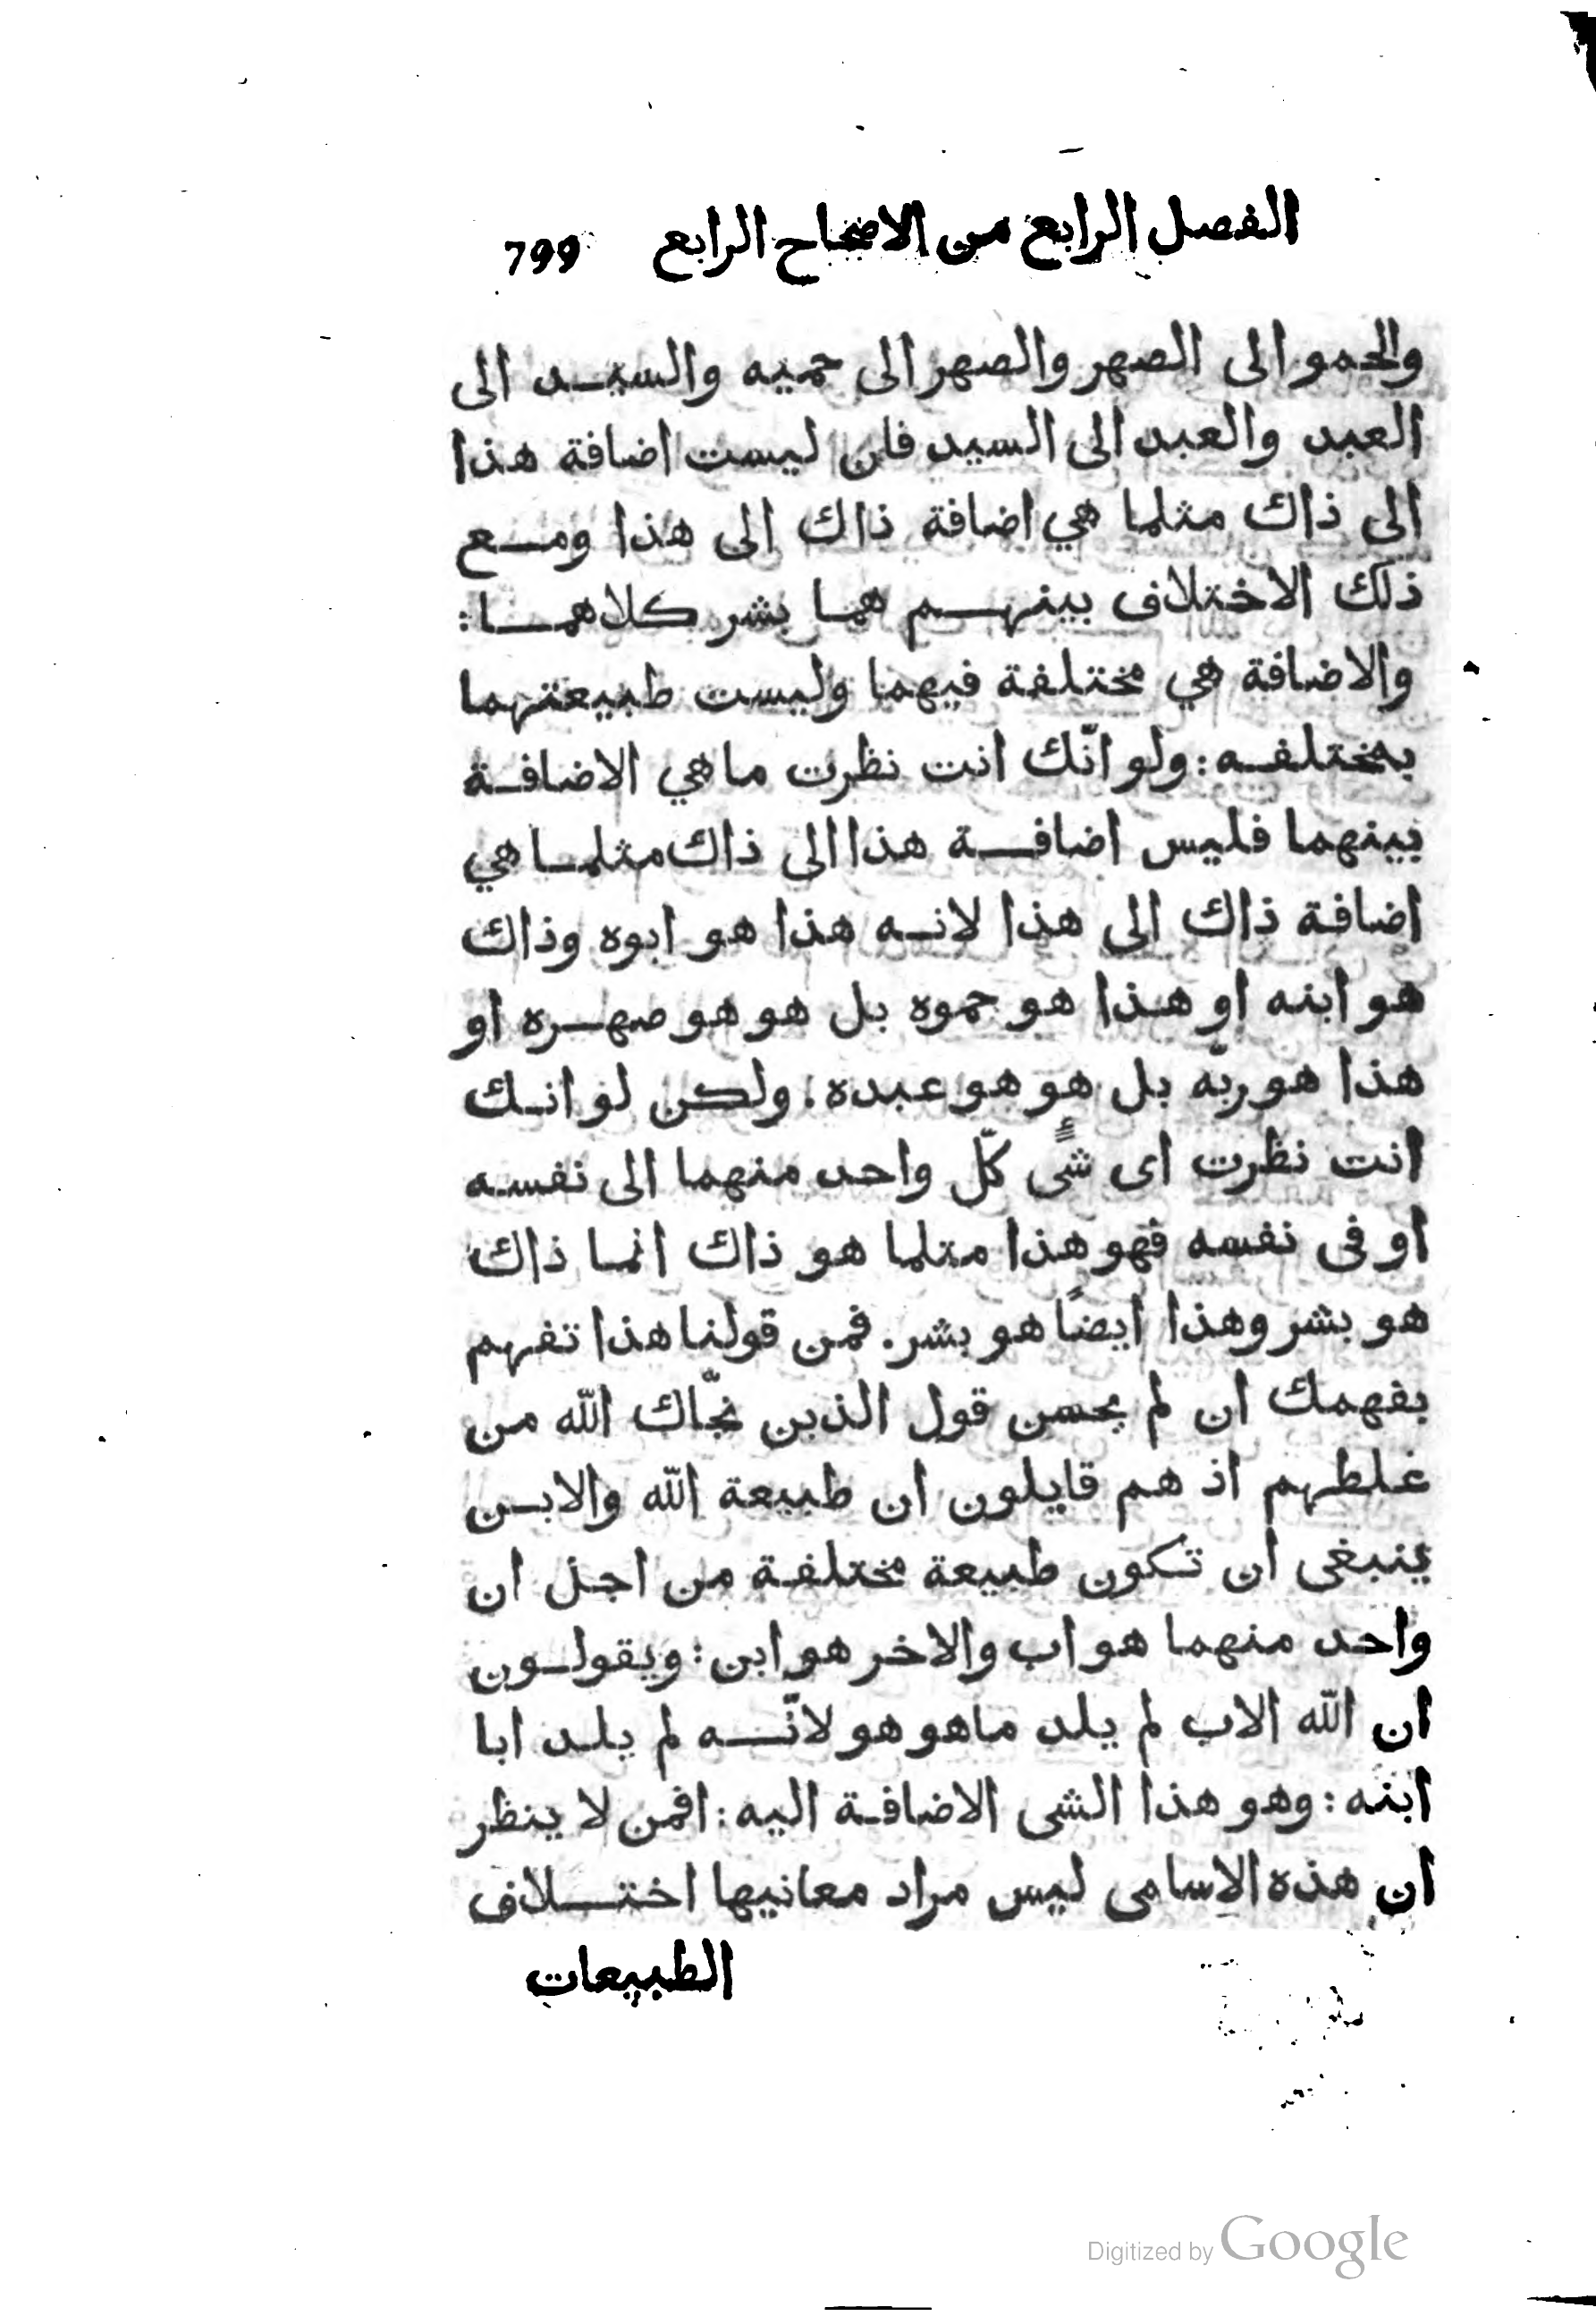 الفصل الرابع من الاصحاح الرابع 799
والحمو الى الصهر والصهر الى حميه والسيد الى
العبد والعبد الى السيد فان ليست اضافة هذا
الى ذاك مثلما هي اضافة ذاك الى هذا ومع
ذلك الاختلاف بينهم هما بشر كلاهما :
والاضافة هي مختلفة فيهما وليست طبيعتهما
بمختلفه : ولو انّك انت نظرت ما هي الاضافة
بينهما فليس اضافة هذا الى ذاك مثلما هي
اضافة ذاك الى هذا لانه هذا هو ابوه وذاك
هو ابنه او هذا هو حموه بل هو هو صهره او
هذا هو ربّه بل هو هو عبده : ولكن لو انك
انت نظرت اى شىً كلّ واحد منهما الى نفسه
او فى نفسه فهو هذا متلما هو ذاك انما ذاك
هو بشر وهذا ايضًا هو بشر . فمن قولنا هذا تفهم
بفهمك ان لم يحسن قول الذين نجّاك الله من
غلطهم اذ هم قايلون ان طبيعة الله والابن
ينبغى ان تكون طبيعة مختلفة من اجل ان
واحد منهما هو اب والاخر هو ابن : ويقولون
ان الله الاب لم يلد ما هو هو لانّه لم يلد ابا
ابنه : وهو هذا الشى الاضافة اليه : افمن لا ينظر
ان هذه الاسامى ليس مراد معانيها اختلاف
الطبيعات
Digitized by Google